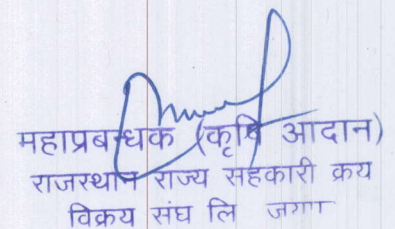 महाप्रबन्धक (कृषि आदान)
राजस्थान राज्य सहकारी क्रय
विक्रय संघ लि